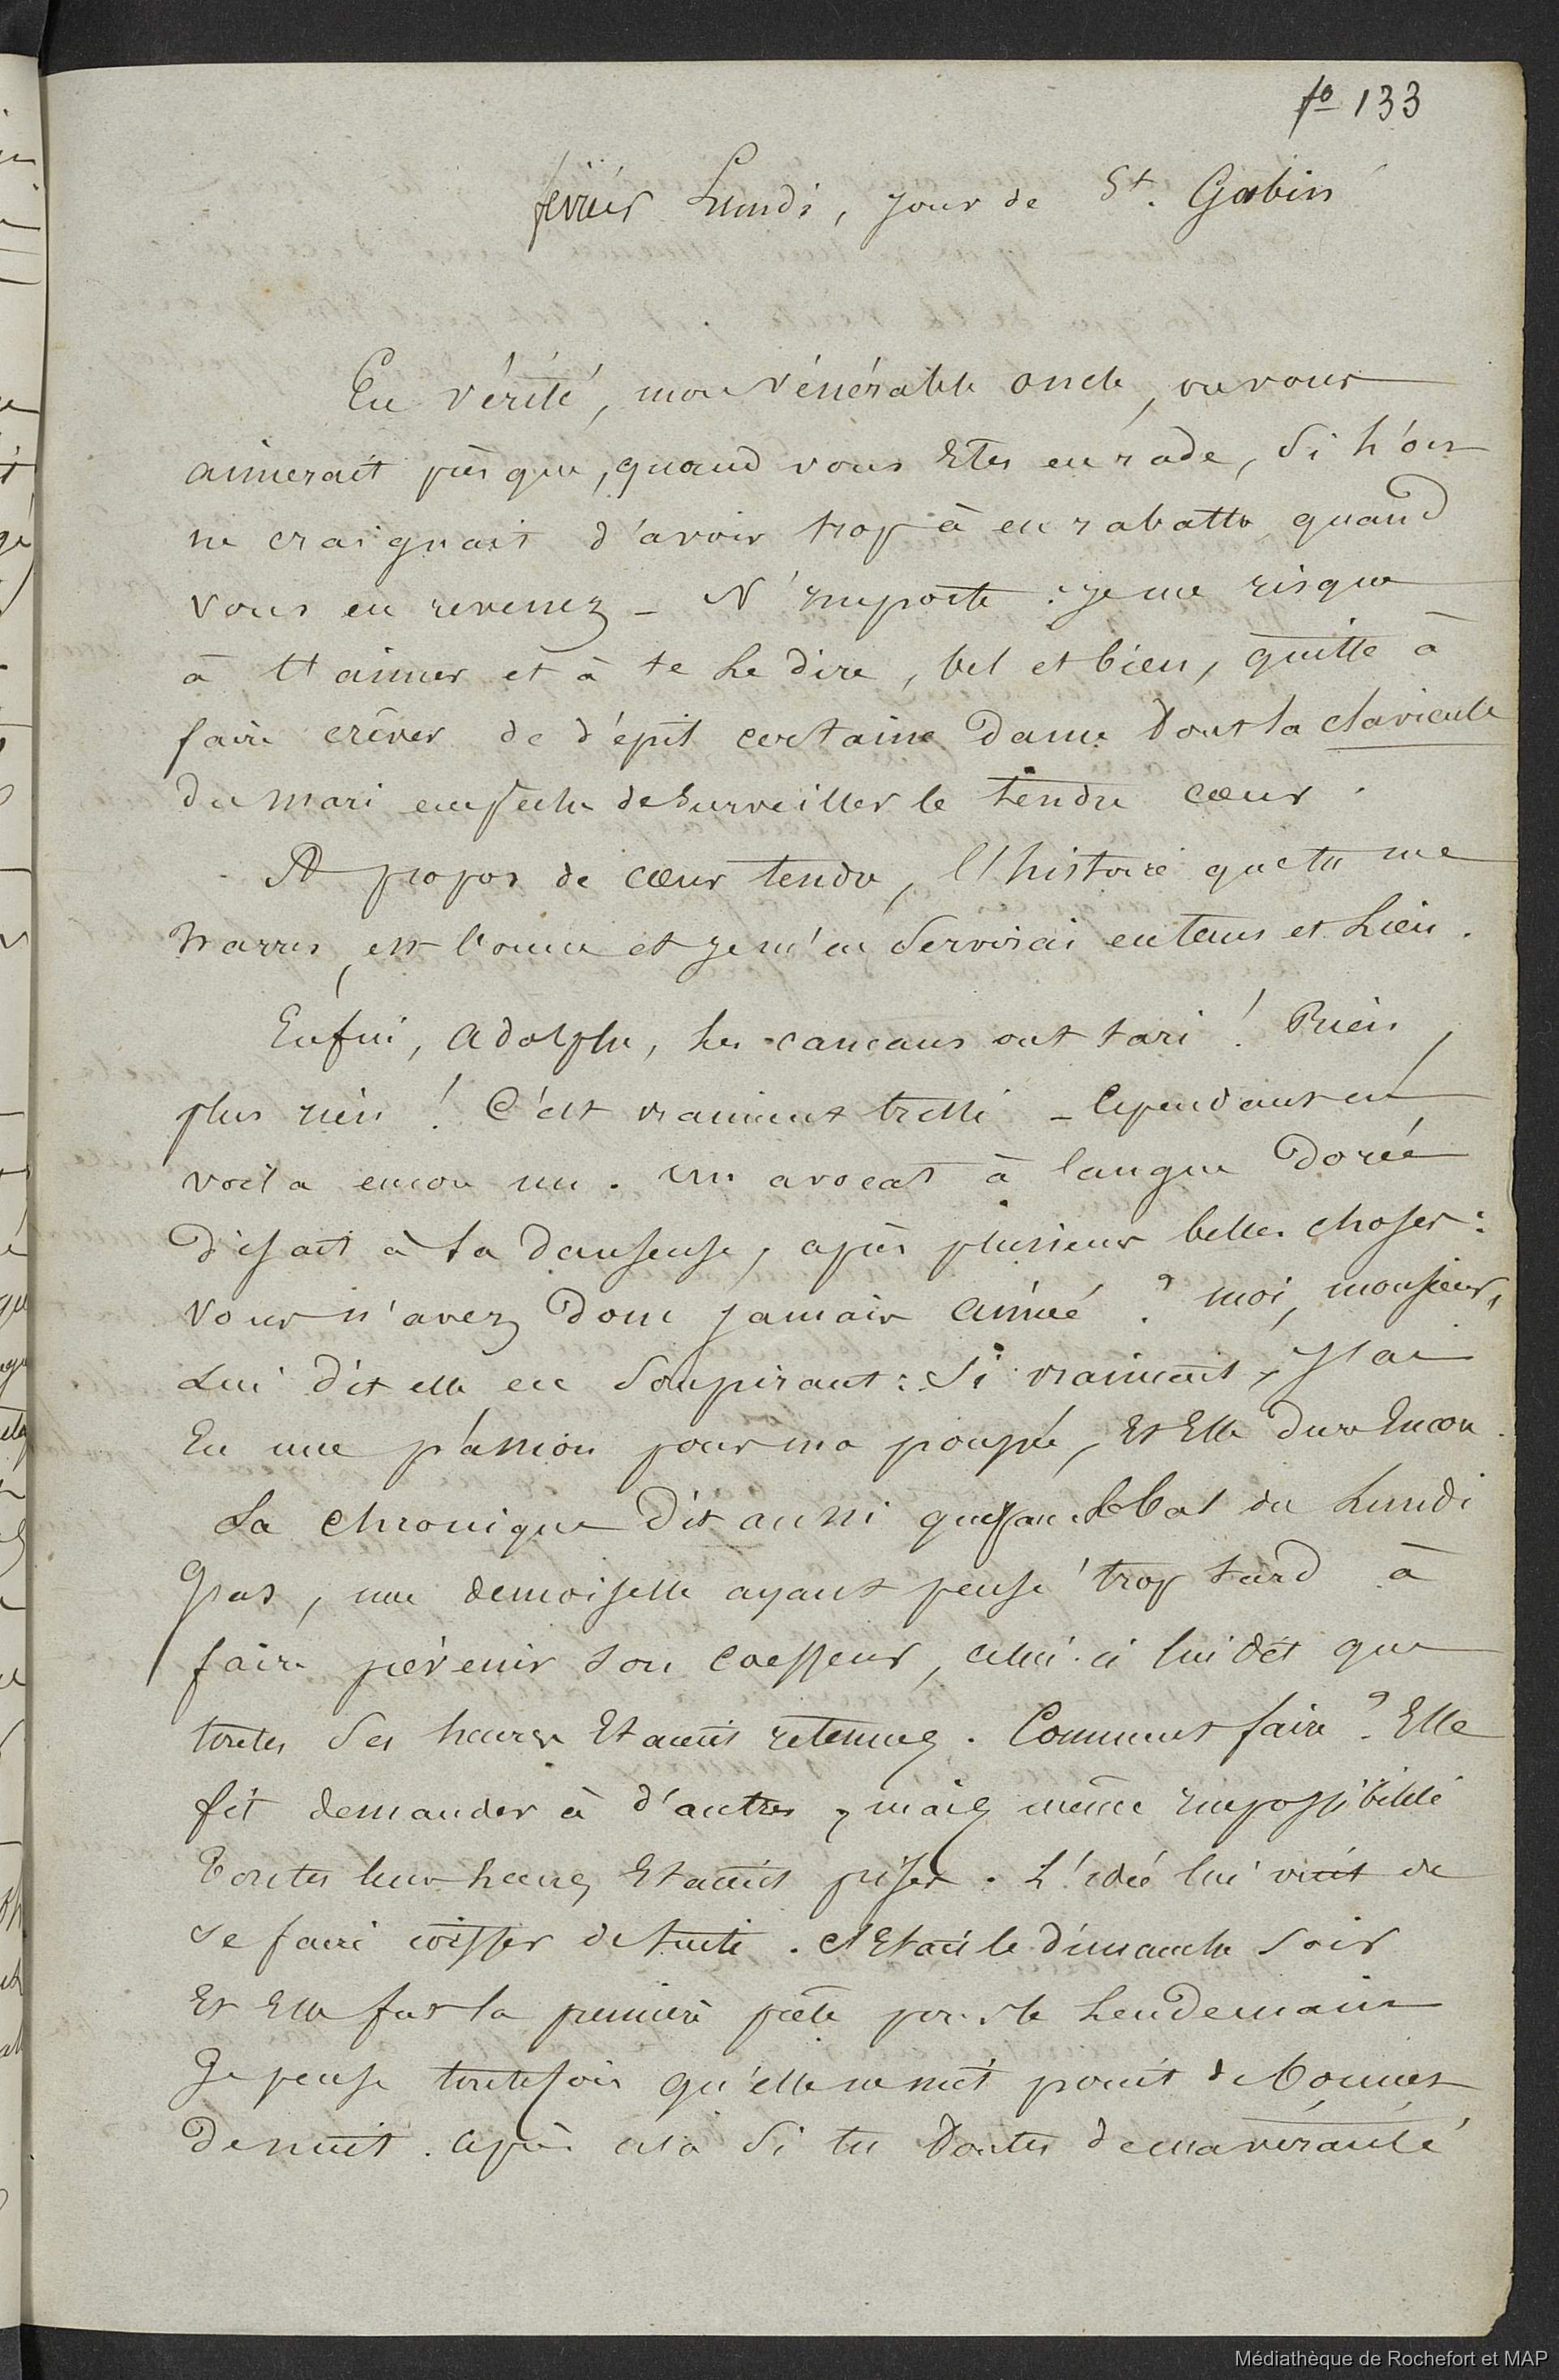 fo 133
février Lundi, jour de St. Gabin
En vérité, mon vénérable oncle, on vous
aimerait presque, quand vous Etes en rade, si l'on
ne craignait d'avoir trop à en rabattre quand
vous en revenez - N'importe : je me risque
à t'aimer et à te le dire, bel et bien, quitte à
faire crêver de dépit certaine Dame dont la clavicule
du mari empêche de surveiller le tendre cœur.
A propos de cœur tendre, l'histoire que tu me
narres, est bonne et je m'en servirai en tems et lieu.
Enfin, Adolphe, les cancans ont tari ! Rien,
plus rien ! C'est vraiment triste - Cependant en
voilà encore un. Un avocat à langue Dorée
Disait à sa danseuse, après plusieurs belles choses :
vous n'avez Donc jamais aimé ? moi, monsieur,
Lui dit elle en soupirant : Si vraiment, J'ai
Eu une passion pour ma poupée, Et Elle dure Encore.
La chronique Dit aussi que pour le bal du Lundi
Gras, une demoiselle ayant pensé trop tard à
faire prévenir son coeffeur, celui-ci lui dit que
toutes ses heures Etaient retenues. Comment faire ? Elle
fit demander à d'autres, mais même impossibilité
Toutes leurs heures Etaient prises. L'idée lui vint de
se faire coiffer de suite. C'Etait le dimanche soir
Et Elle fut la première prête pour le Lendemain
Je pense toutefois qu'elle ne mit point de bonnet
de nuit. après cela si tu Doutes de ma véracité
Médiathèque de Rochefort et MAP